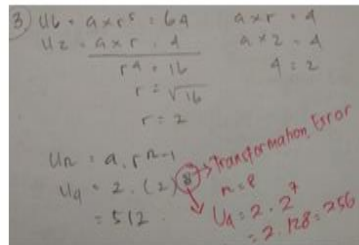 3) U6 = a x r⁵ = 64
U2 = a x r = 4
r⁴ = 16
r = √16
r = 2
a x r = 4
a x 2 = 4
a = 2
Un = a . r ⁿ⁻¹
U9 = 2 . (2) 8
= 512
Transformation Error
n = 8
U9 = 2 . 2⁷
= 2 . 128 = 256